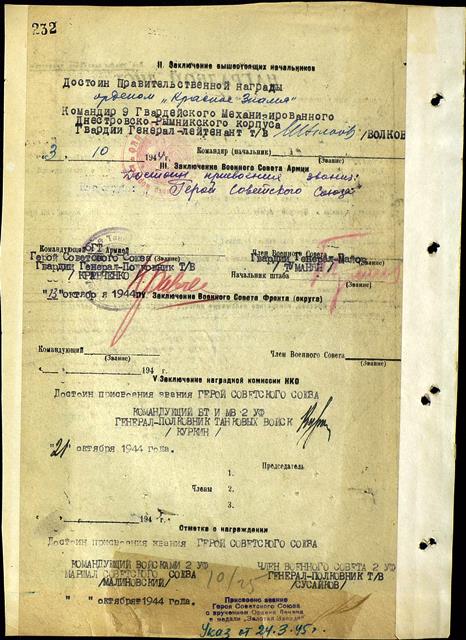 232
II. Заключение вышестоящих начальников
Достоин Правительственной Награды
орденом „Красное Знамя"
Командир 9 Гвардейского Механизированного
Днестровско-Рымникского корпуса
Гвардии Генерал-Лейтенант Т/В /ВОЛКОВ
"3" 10 1944 г. Командир (начальник)
(Звание)
III. Заключение Военного Совета Армии
Достоин присвоения звания:
"Герой Советского Союза"
Командующий 6ГТ Армией Член Военного Совета
Герой Советского Союза (Звание) Гвардии Генерал-Майор
Гвардии Генерал-Полковник Т/В / ТУМАНЯН / (Звание)
/ КРАВЧЕНКО Начальник штаба
(Звание)
"13" октября 1944 г. Заключение Военного Совета Фронта (округа)
Командующий Член Военного Совета
(Звание) (Звание)
" " 194 г.
V Заключение наградной комиссии НКО
Достоин присвоения звания ГЕРОЙ СОВЕТСКОГО СОЮЗА
КОМАНДУЮЩИЙ БТ И МВ 2 УФ
ГЕНЕРАЛ-ПОЛКОВНИК ТАНКОВЫХ ВОЙСК
/ КУРКИН /
"21" октября 1944 года.
Председатель
1.
Члены 2.
3.
" " 194 г.
Отметка о награждении
Достоин присвоения звания ГЕРОЙ СОВЕТСКОГО СОЮЗА
КОМАНДУЮЩИЙ ВОЙСКАМИ 2 УФ ЧЛЕН ВОЕННОГО СОВЕТА 2 УФ
МАРШАЛ СОВЕТСКОГО СОЮЗА ГЕНЕРАЛ-ПОЛКОВНИК Т/В
/МАЛИНОВСКИЙ/ /СУСАЙКОВ/
10/25
" " октября 1944 года.
Присвоено звание
Героя Советского Союза
с вручением Ордена Ленина
и медали „Золотая Звезда"
Указ от 24.3.45 г.